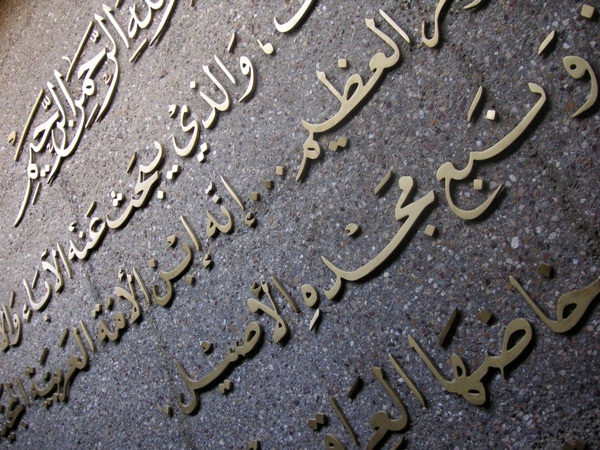 الله الرَّحمن الرَّحيم
، وَالذيْ يبحَث عَنهُ الآباء
العَظيم ... إنّه إبْن الأمّة العَربيّة
وَنَبع مَجْدِهِ الأصيْل.
حَاضنهَا العِراق